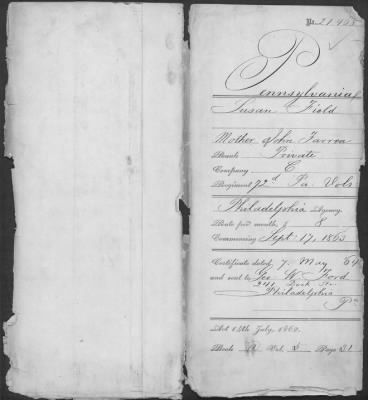 No. 21.408
Pennsylvania
Susan Field
Mother of John Farren
Rank Private
Company C
Regiment 72d Pa. Vols
Philadelphia Agency.
Rate per month, $ 8
Commencing Sept. 17, 1863
Certificate dated 7. May 64
and sent to Geo. W. Ford
241 Dock St.
Philadelphia
Pa
Act 14th July, 1862.
Book A Vol. 5 Page 31